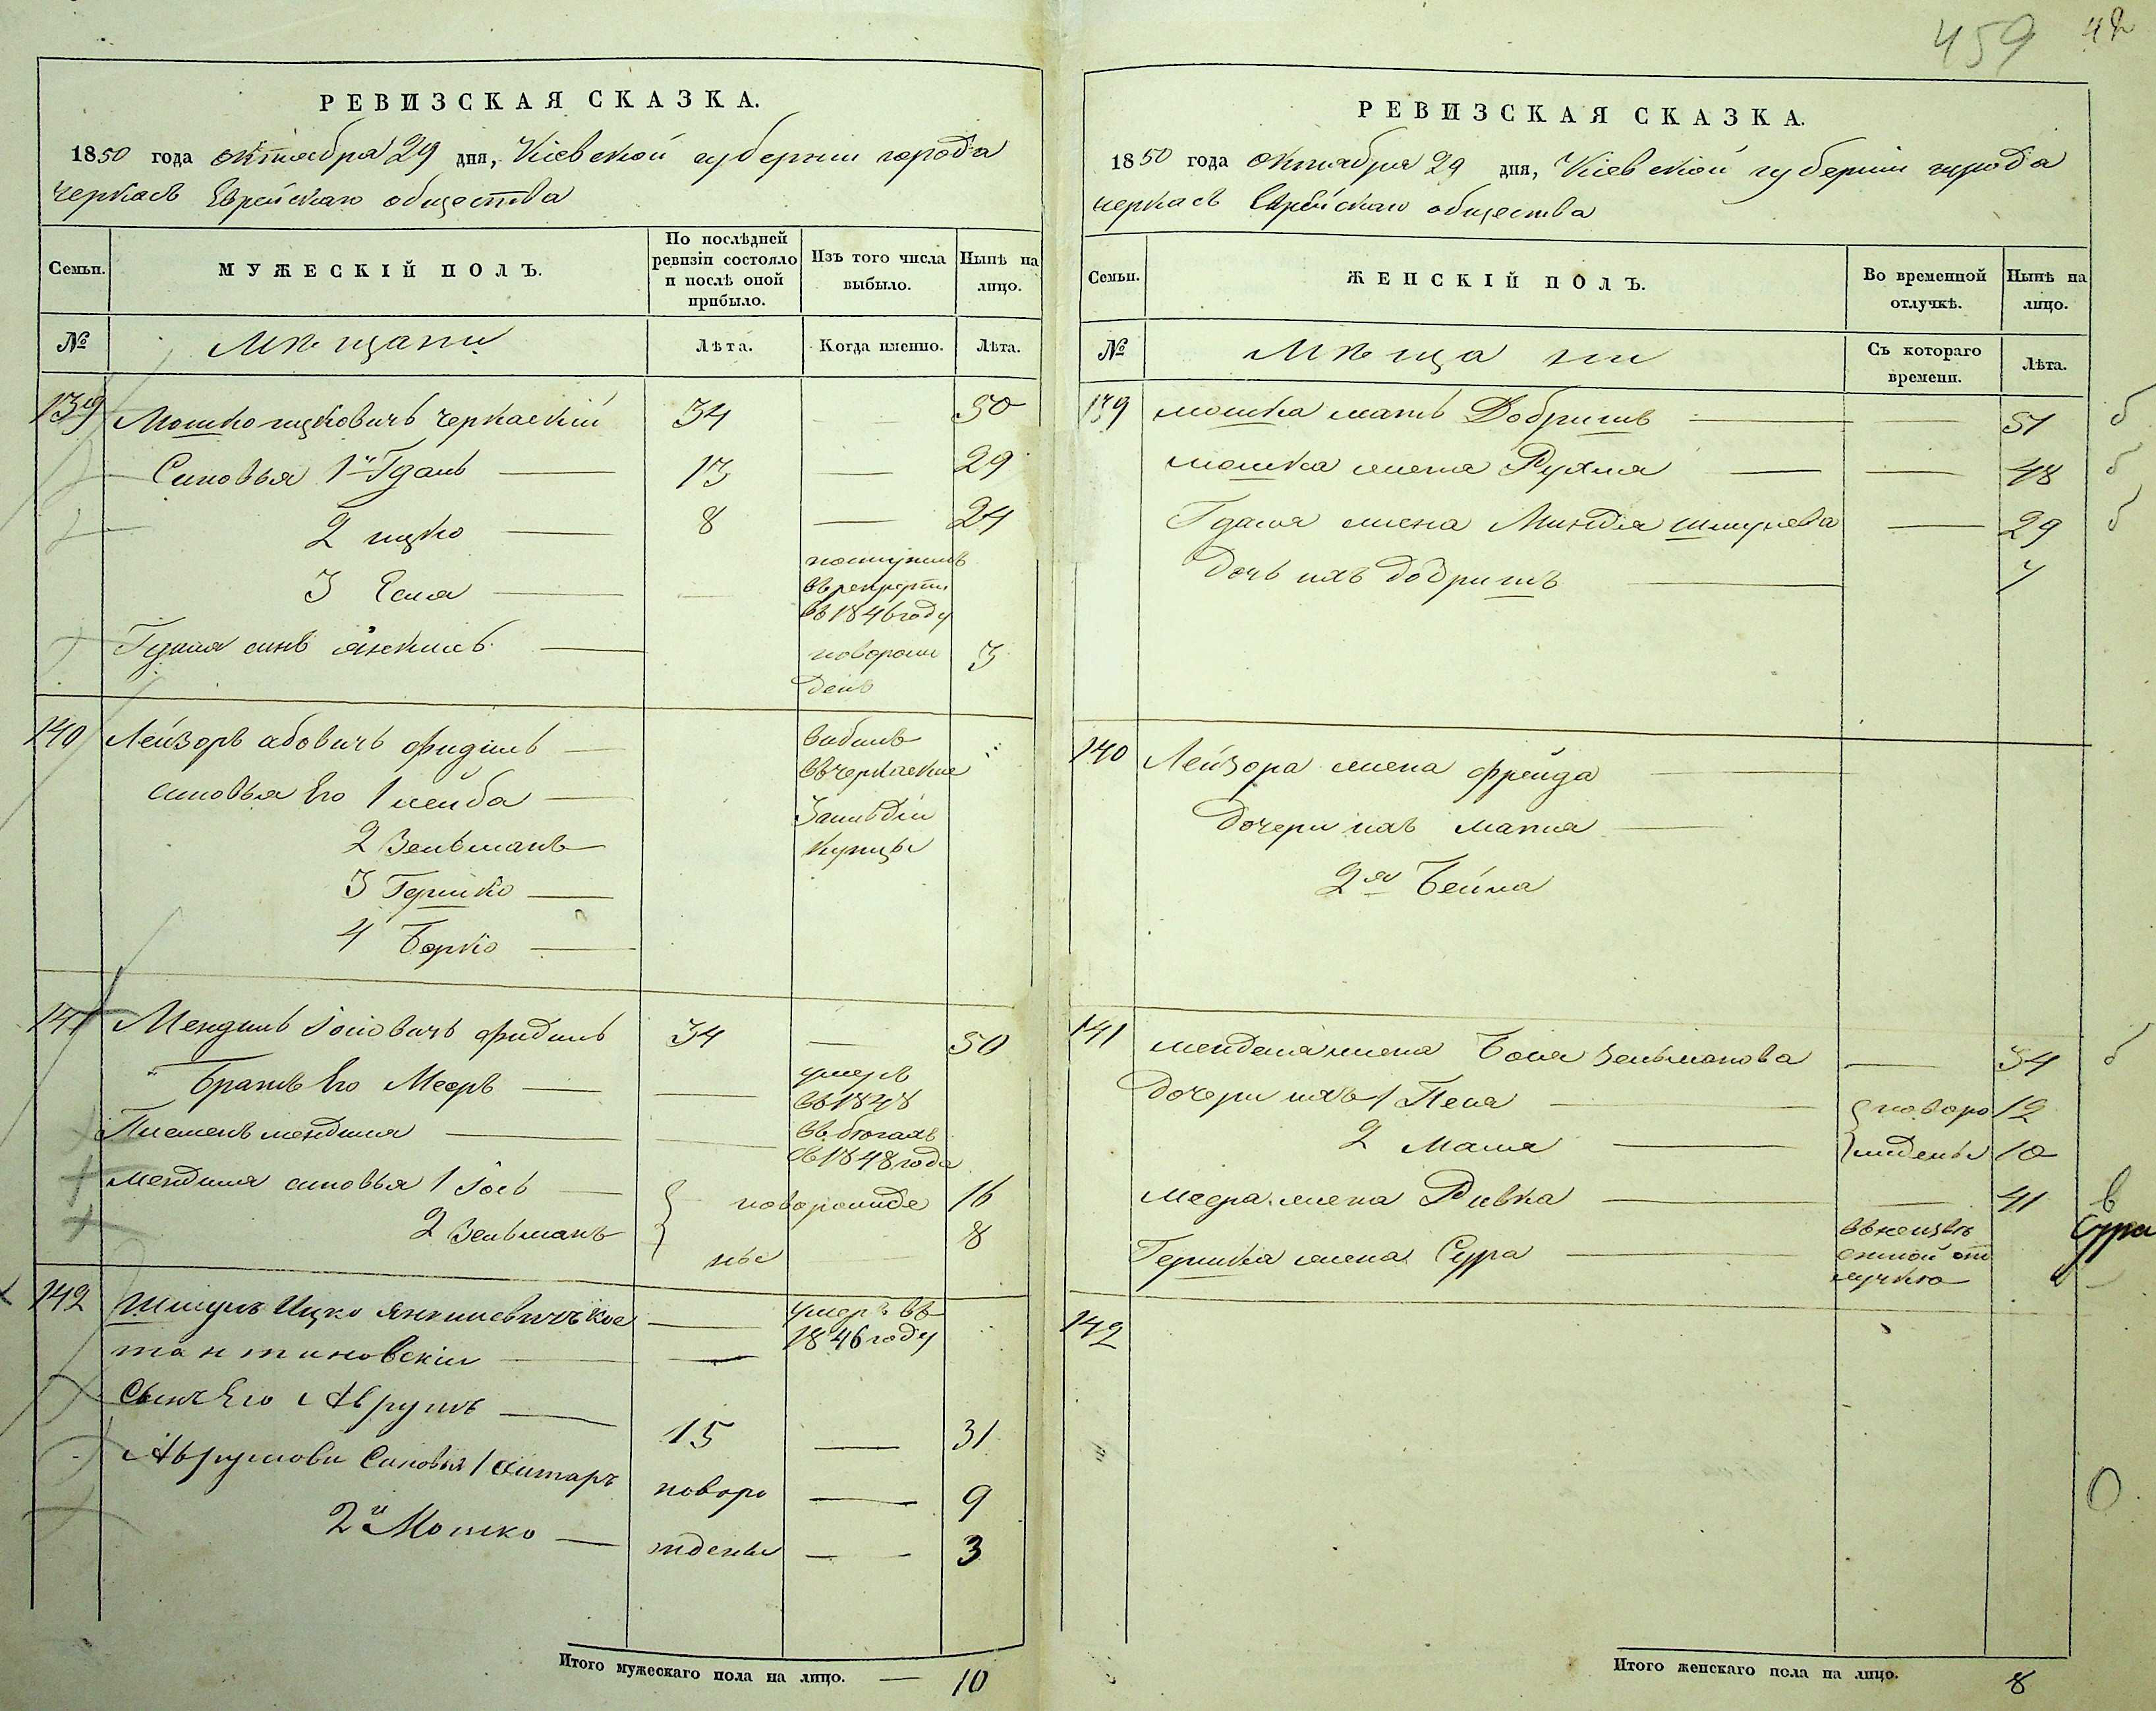 459 42
РЕВИЗСКАЯ СКАЗКА.
1850 года октября 29 дня, Кіевской губерніи города
черкасъ Еврейскаго общества
Семьи. МУЖЕСКІЙ ПОЛЪ. По послѣдней ревизіи состояло и послѣ оной прибыло. Изъ того числа выбыло. Нынѣ на лицо.
№ Мѣщани Лѣта. Когда именно. Лѣта.
139 Мошко ицковичъ черкаскій 34 — 50
Синовья 1й Гдаль — 13 — 29
2 ицко — 8 — 24
3 Есла — — поступилъ
въ рекруты
въ 1846 году
Гдаля синъ янкилъ — новорож 3
денъ
140 Лейзоръ абовичъ фидель — вибилъ
синовья Его 1 лейба — въ черкаские
2 Зельманъ — 3 гильдіи
3 Гершко — купцы
4 Берко —
141 Мендиль іосіовичъ фидиль 34 — 50
Братъ Его Мееръ — — умеръ
въ 1848
мендиля — — въ бѣгахъ
съ 1848 года
мендиля синовья 1 іось — новорожде 16
2 Зельманъ ны 8
142 Шмуль Ицко Янкилевичъ Кос — умеръ въ
тантиновскій — — 1846 году
Сынъ Его Аврумъ — 15 — 31
Аврумови Синовья 1 новоро — 9
2й Мошко — жdены — 3
Итого мужескаго пола на лицо. — 10
РЕВИЗСКАЯ СКАЗКА.
1850 года октября 29 дня, Кіевской губерніи города
черкасъ Еврейскаго общества
Семьи. ЖЕНСКІЙ ПОЛЪ. Во временной отлучкѣ. Нынѣ на лицо.
№ Мѣщани Съ котораго времени. Лѣта.
139 мошка мать Добришъ — — 51 б
мошка жена Рухля — — 48 б
Гдаля жена Миндля шмулева — 29 б
Дочь ихъ добришъ — 7
140 Лейзора жена фрейда —
Дочери ихъ —
2я Бейла
141 менделя жена Бося зельманова — 34 б
Дочери ихъ 1 Песя — новоро 12
2 Маля — жденны 10
меера жена Ривка — — 41 в
Гершка жена Сура — въ неизвѣ Сура
стной от
лучкѣ
142
Итого женскаго пола на лицо. 8